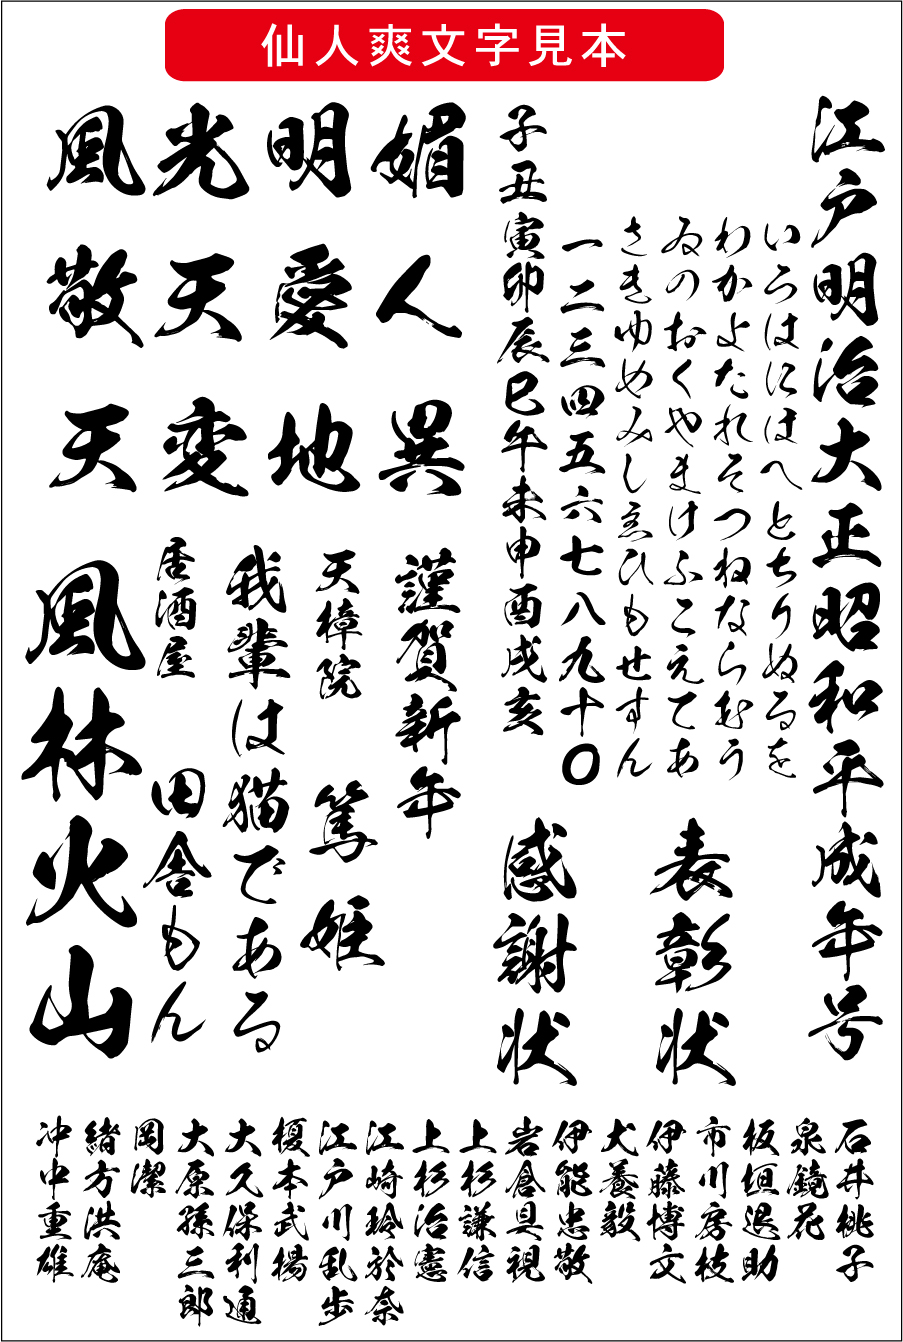 仙人爽文字見本
江戸明治大正昭和平成年号
いろはにほへとちりぬるを
わかよたれそつねならむう
ゐのおくやまけふこえてあ
さきゆめみしゑひもせすん
一二三四五六七八九十〇
子丑寅卯辰巳午未申酉戌亥
表彰状
感謝状
風光明媚
敬天愛人
天変地異
謹賀新年
天樟院 篤姫
我輩は猫である
居酒屋 田舎もん
風林火山
石井桃子
泉鏡花
板垣退助
市川房枝
伊藤博文
犬養毅
伊能忠敬
岩倉具視
上杉謙信
上杉治憲
江崎玲於奈
江戸川乱歩
榎本武揚
大久保利通
大原孫三郎
岡潔
緒方洪庵
冲中重雄